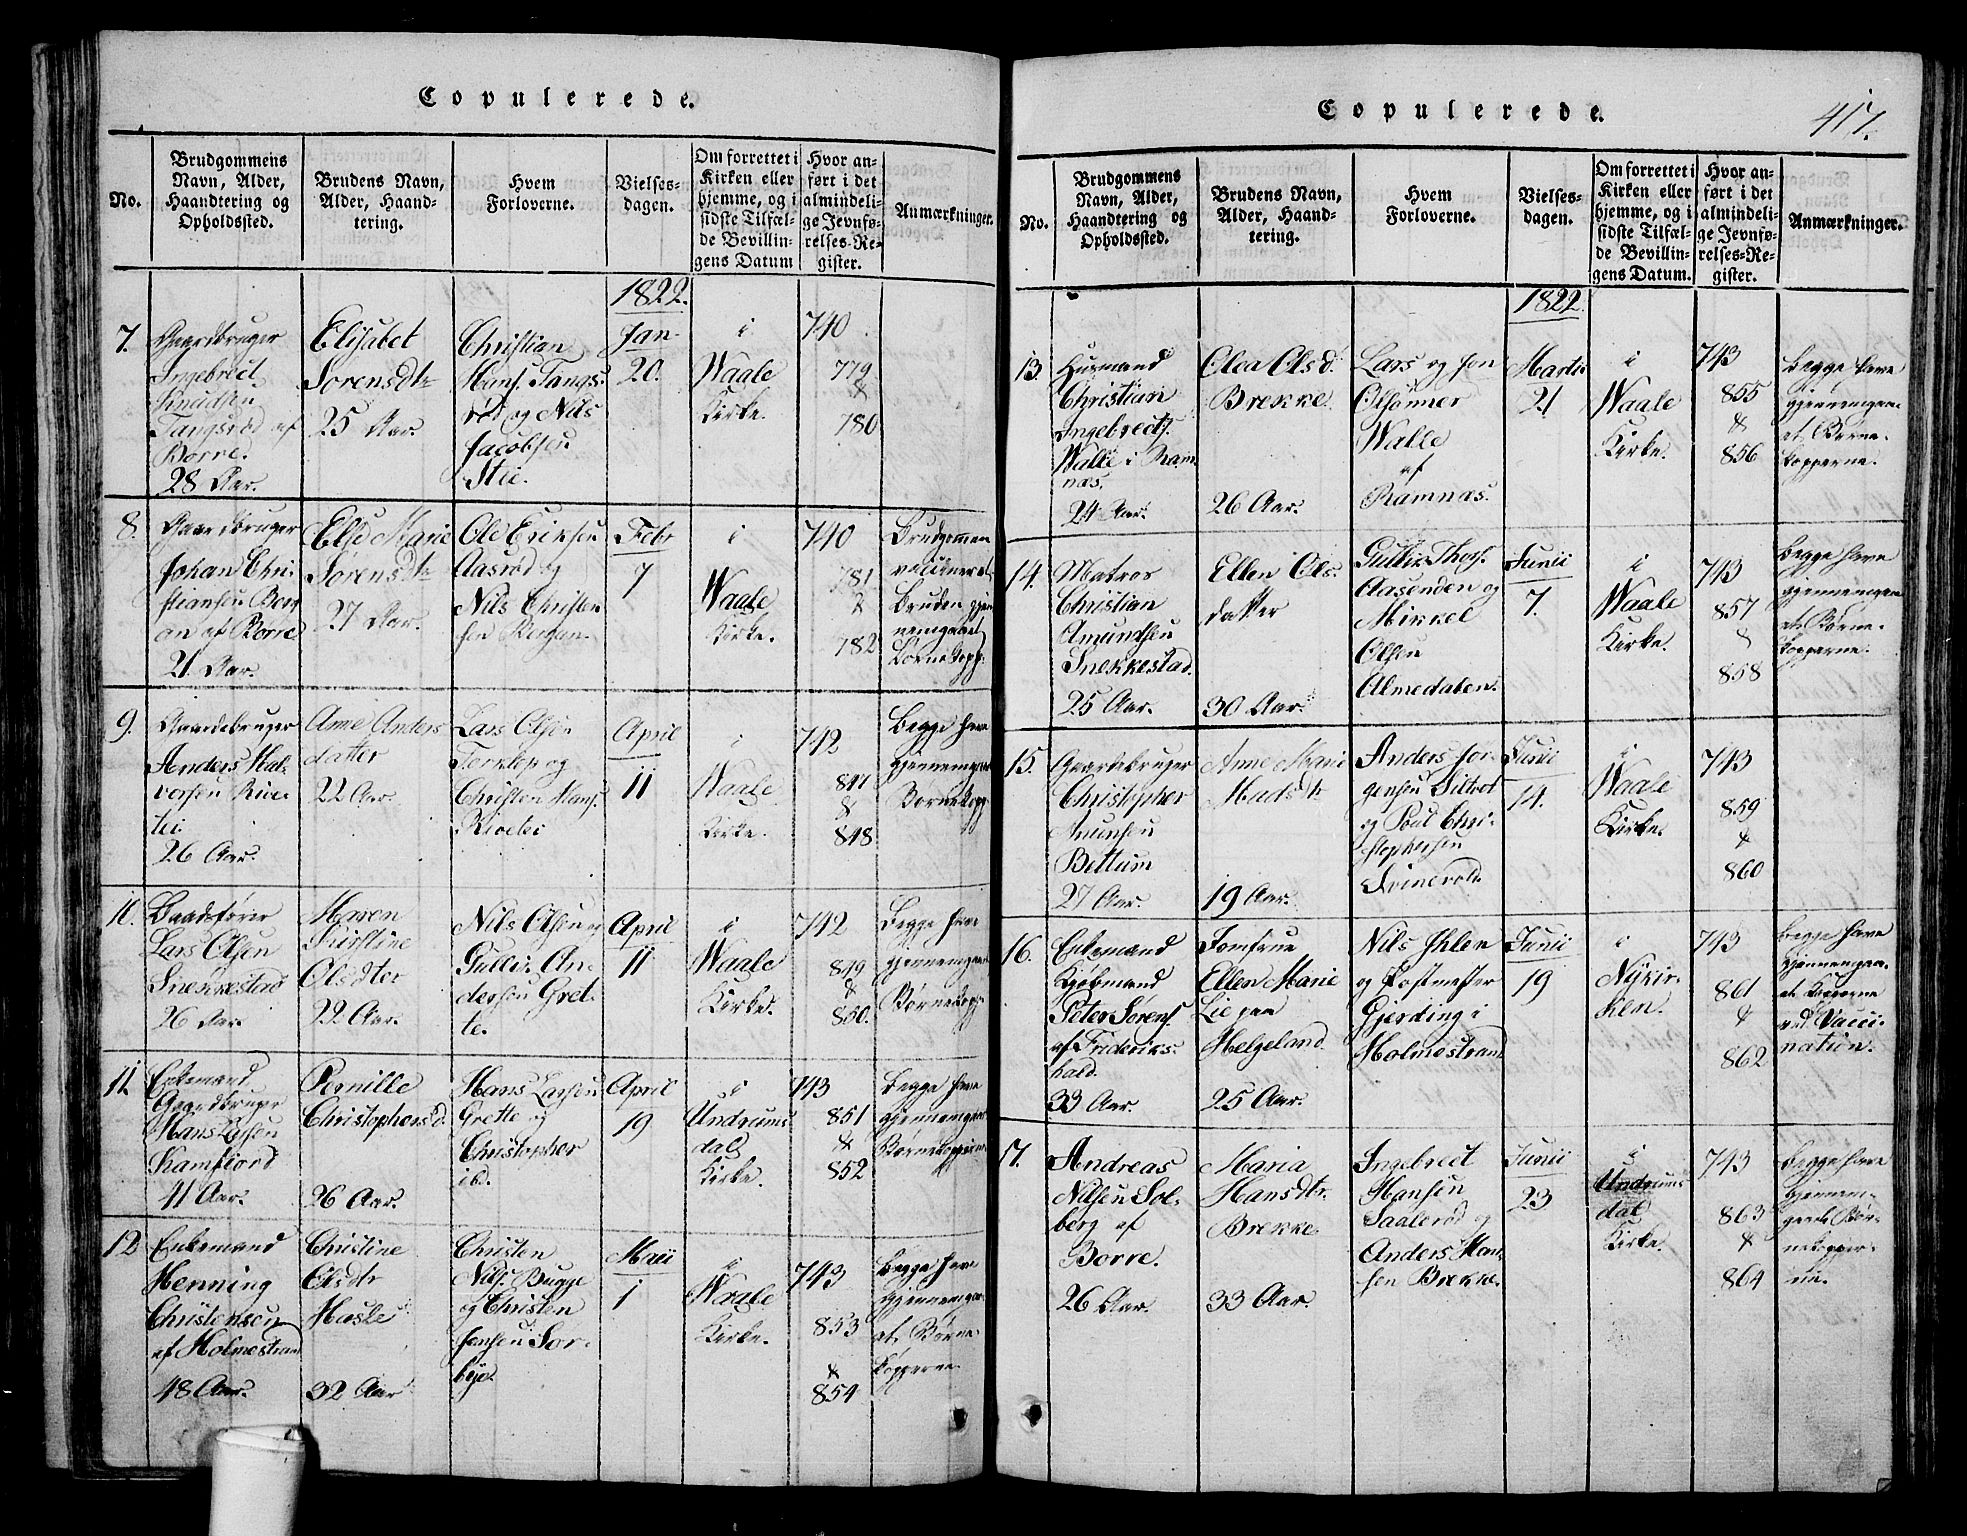 Copulerede.
No.
Brudgommens
Navn, Alder,
Haandtering og
Opholdssted.
Brudens Navn,
Alder, Haand-
tering.
Hvem
Forloverne.
Vielses-
dagen.
Om forrettet i
Kirken eller
hjemme, og i
sidste Tilfæl-
de Bevillin-
gens Datum
Hvor an-
ført i det
almindeli-
ge Jevnfø-
relses-Re-
gister.
Anmærkninger.
1822.
7.
Gaardbruger
Ingebrect
Knudsen
Tangsrød af
Borre.
28 Aar.
Elisabet
Sørensdtr
25 Aar.
Christian
Hans. Tangs-
rød og Nils
Jacobsen
Stie.
Jan
20.
i
Waale
Kirke.
740
779
&
780
8.
Gaardbruger
Johan Chri-
stiansen
af Borre
21 Aar.
Else Marie
Sørensdtr
27 Aar.
Ole Eriksen
Aasrød og
Nils Christen-
sen
Febr
7
i
Waale
Kirke.
740
781
&
782
Brudgommen
vaccineret
Bruden gjen-
nemgaaet
Børnekopp.
9.
Gaardebruger
Anders Hal-
vorsen
26 Aar.
Anne Anders
datter
22 Aar.
Lars Olsen
og
Christen Hans.
April
11
i
Waale
Kirke.
742
847
&
848
Begge have
gjennemgaaet
Børnekopp.
10.
Baadsfører
Lars Olsen
Snekkestad
26 Aar.
Maren
Kirstine
Olsdter
22 Aar.
Nils Olsen og
Gulli An-
dersen Gret-
te.
April
11
i
Waale
Kirke.
742
849
&
850.
Begge have
gjennemgaaet
Børnekopp.
11.
Enkemand
Gaardbruger
Hans
Kamfiord
41 Aar.
Pernille
Christophersd.
26 Aar.
Hans Larsen
Grette og
Christopher
ibd.
April
19
i
Undrums
dals
Kirke.
743
851
&
852
Begge have
gjennemgaaet
Børnekopperne
12
Enkemand
Henning
Christensen
af Holmestrand
48 Aar.
Christine
Olsdtr
Hasle
32 Aar
Christen
Nils. Bugge
og Christen
Jensen Sør-
bye.
Maii
1
i
Waale
Kirke.
743
853
&
854
Begge have
gjennemgaa-
et Børne-
kopperne.
Copulerede.
417.
No.
Brudgommens
Navn, Alder,
Haandtering og
Opholdssted.
Brudens Navn,
Alder, Haand-
tering.
Hvem
Forloverne.
Vielses-
dagen.
Om forrettet i
Kirken eller
hjemme, og i
sidste Tilfæl-
de Bevillin-
gens Datum.
Hvor an-
ført i det
almindeli-
ge Jevnfø-
relses-Re-
gister.
Anmærkninger.
1822.
13.
Husmand
Christian
Ingebrects.
Walle i Ram-
næs.
24 Aar.
Olea Olsd.
Brekke.
26 Aar.
Lars og Jon
Olsønner
Walle
af
Ramnæs.
Martii
21
i
Waale
Kirke.
743
855
&
856
Begge have
gjennemgaa-
et Børne-
kopperne.
14.
Matros
Christian
Amundsen
Snekkestad.
25 Aar.
Ellen Ols-
datter
30 Aar.
Gullik Thors.
Aasenden og
Mikkel
Olsen
Almedalen.
Junii
7.
i
Waale
Kirke.
743
857
&
858
Begge have
gjennemgaa-
et Børne-
kopperne.
15.
Gaardebruger
Christopher
Bettum
27 Aar.
Anne Marie
Madsdtr
19 Aar.
Anders Jør-
gensen
og Poul Chri-
stophersen
Svinevold.
Junii
14.
i
Waale
Kirke.
743
859
&
860
16.
Enkemand
Kjøbmand
Peter Sørens.
af Frideriks-
hald.
33 Aar.
Jomfrue
Ellen Marie
Lie paa
Helgeland.
25 Aar.
Nils Ihlen
og Postmester
Gjerding i
Holmestrand
Junii
19
i
Nykir-
ken.
743
861
&
862
Begge have
gjennemgaa-
et Kopperne
ved Vacci-
nation.
17.
Andreas
Nilsen Sol-
berg af
Borre.
26 Aar.
Maria
Hansdtr.
Brekke.
33 Aar.
Ingebrect
Hansen
Saalerød og
Anders Han-
sen Brekke.
Junii
23
i
Undrums
dal
Kirke.
743
863
&
864
Begge have
gjennem-
gaaet Bør-
nekopper-
ne.